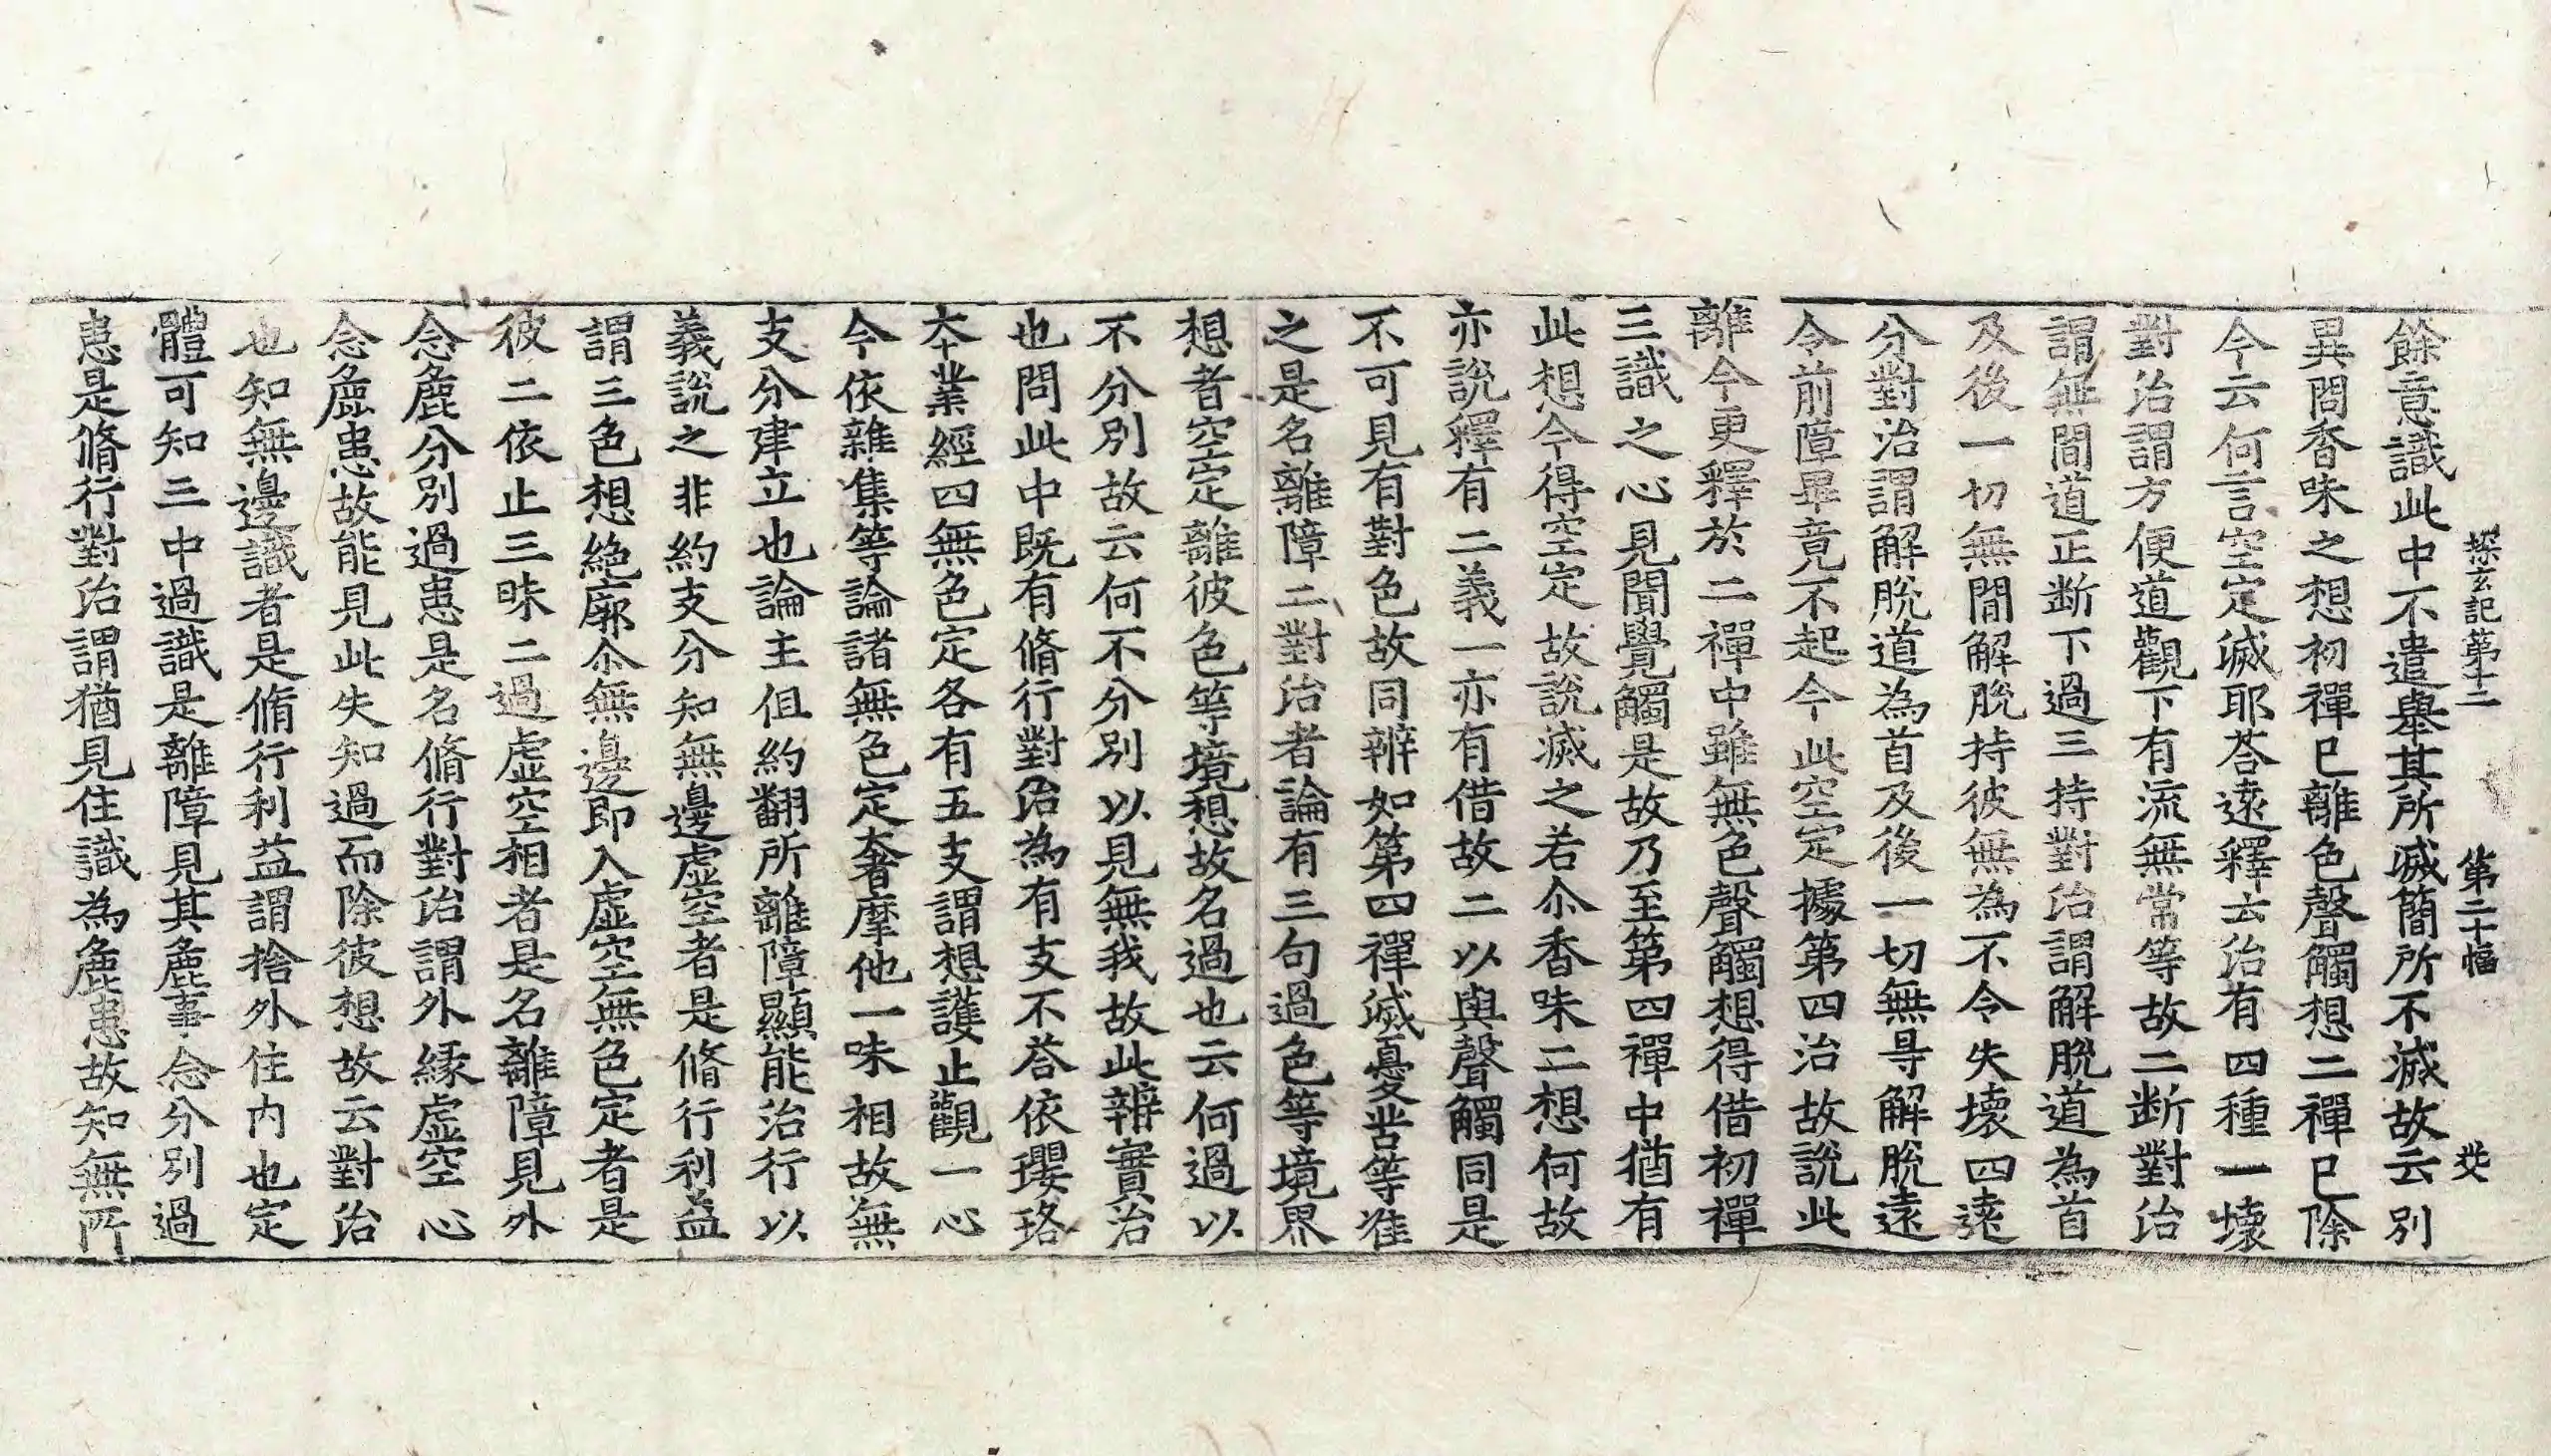 探玄記第十二 第二十幅 㷠
餘意識此中不遣舉其所滅簡所不滅故云別
異問香味之想初禪已離色聲觸想二禪已除
今云何言空定滅耶荅遠釋云治有四種一壞
對治謂方便道觀下有流無常等故二断對治
謂無間道正断下過三持對治謂解脫道為首
及後一切無間解脫持彼無為不令失壞四遠
分對治謂解脫道為首及後一切無㝵解脫遠
令前障畢竟不起今此空定據第四治故說此
離今更釋於二禪中雖無色聲觸想得借初禪
三識之心見聞覺觸是故乃至第四禪中猶有
此想今得空定故說滅之若尒香味二想何故
亦說釋有二義一亦有借故二以與聲觸同是
不可見有對色故同辨如第四禪滅憂苦等准
之是名離障二對治者論有三句過色等境界
想者空定離彼色等境想故名過也云何過以
不分別故云何不分別以見無我故此辨實治
也問此中既有脩行對治為有支不荅依瓔珞
夲業經四無色定各有五支謂想護止觀一心
今依雜集等論諸無色定奢摩他一味相故無
支分建立也論主但約翻所離障顯能治行以
義說之非約支分知無邊虛空者是脩行利益
謂三色想絶廓尒無邊即入虛空無色定者是
彼二依止三昧二過虛空相者是名離障見外
念麁分別過患是名脩行對治謂外緣虛空心
念麁患故能見此失知過而除彼想故云對治
也知無邊識者是脩行利益謂捨外住內也定
體可知三中過識是離障見其麁事念分別過
患是脩行對治謂猶見住識為麁患故知無所